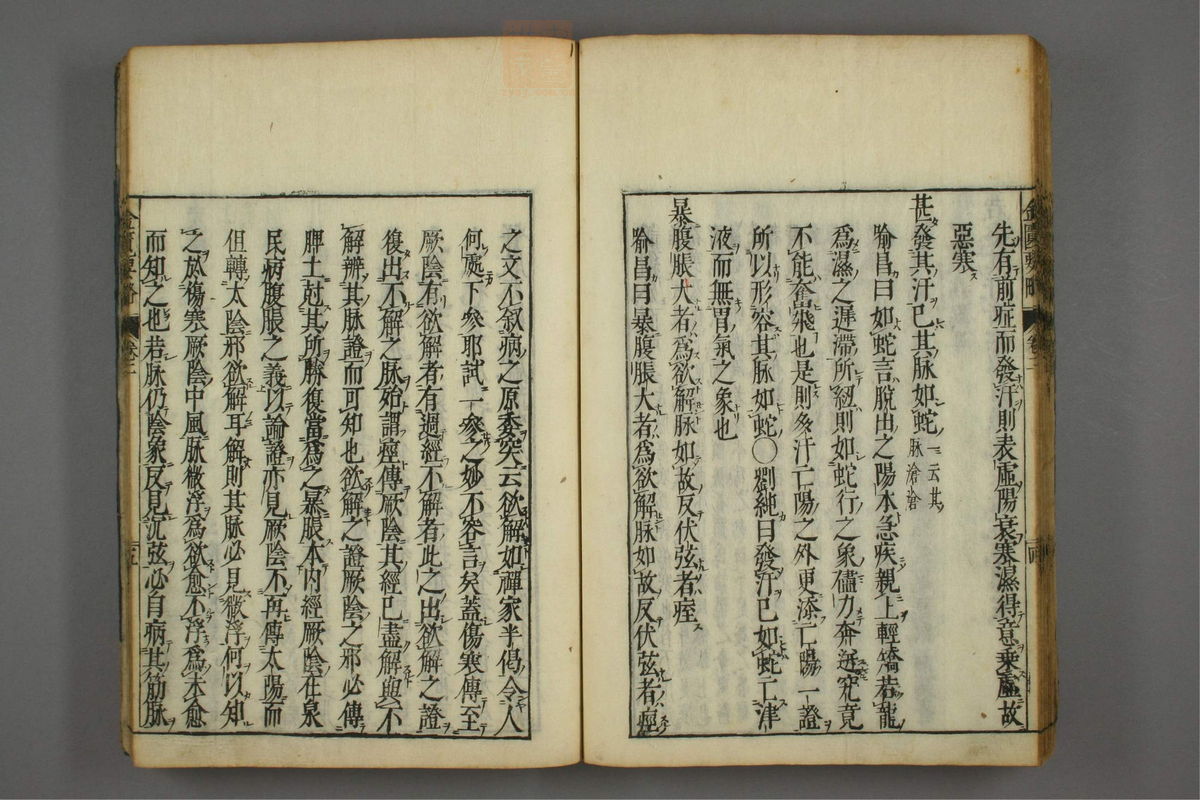 先有前症而發汗則表虛陽衰寒濕得意乘虛故
惡寒
甚發其汗已其脉如蛇 一云其脉滄滄
喻昌曰如蛇言脫出之陽本急疾親上輕矯若龍
爲濕之遲滯所紐則如蛇行之象儘力奔迸究竟
不能奮飛也是則多汗亡陽之外更添亡陽一證
所以形容其脉如蛇○劉純曰發汗已如蛇亡津
液而無胃氣之象也
暴腹脹大者爲欲解脉如故反伏弦者痓
喻昌曰暴腹脹大者爲欲解脉如故反伏弦者痙
之文不叙病之原委突云欲解如禪家半偈令人
何處下參耶試一參之妙不容言矣蓋傷寒傳至
厥陰有欲解者有過經不解者此之出欲解之證
復出不解之脉始謂痙傳厥陰其經已盡解與不
解辨其脉證而可知也欲解之證厥陰之邪必傳
脾土尅其所勝復當爲之暴脹本内經厥陰在泉
民病腹脹之義以論證亦見厥陰不再傳太陽而
但轉太陰邪欲解耳解則其脉必見微浮何以知
之於傷寒厥陰中風脉微浮爲欲愈不浮爲未愈
而知之也若脉仍陰象反見沉弦必自病其筋脉